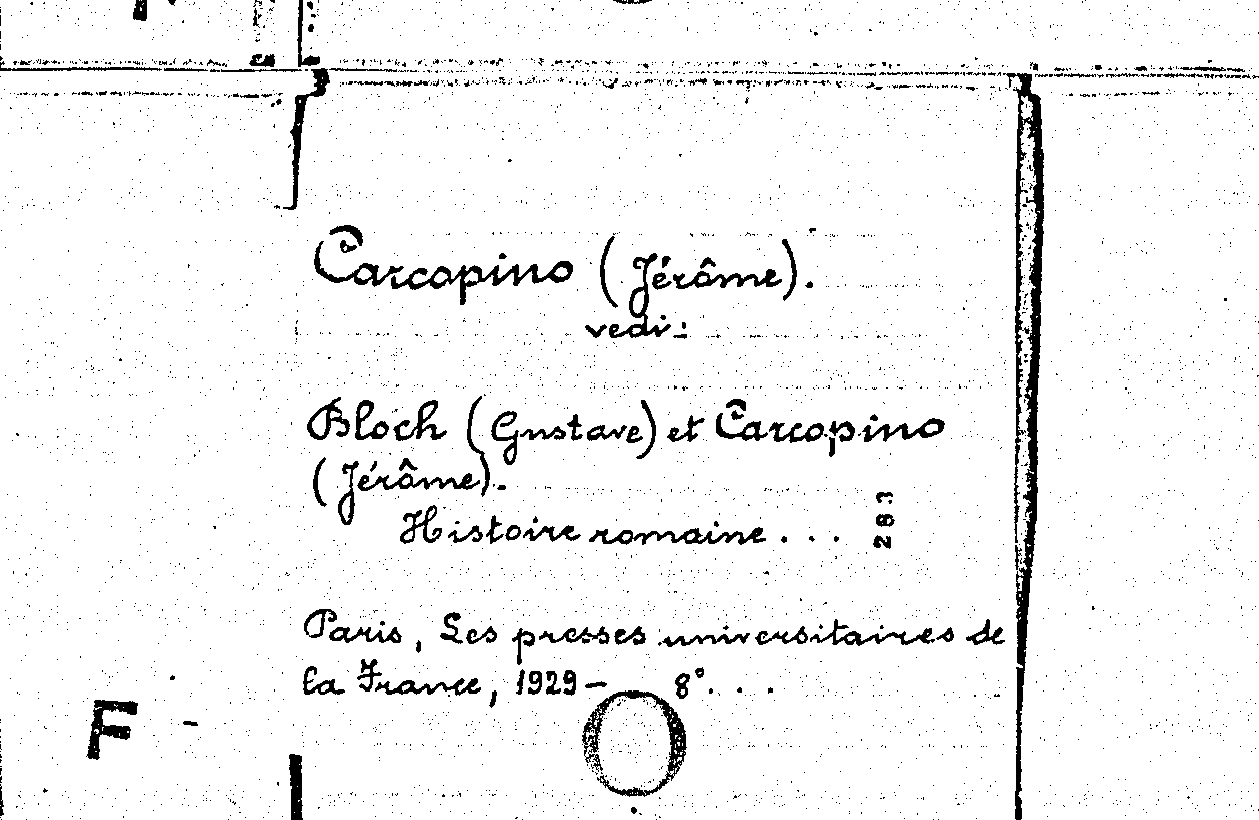 Carcopino (Jérôme).
vedi:
Bloch (Gustave) et Carcopino
(Jérôme).
Histoire romaine . . .
283
Paris, Les presses universitaires de
la France, 1929 – 8°. . .
F -